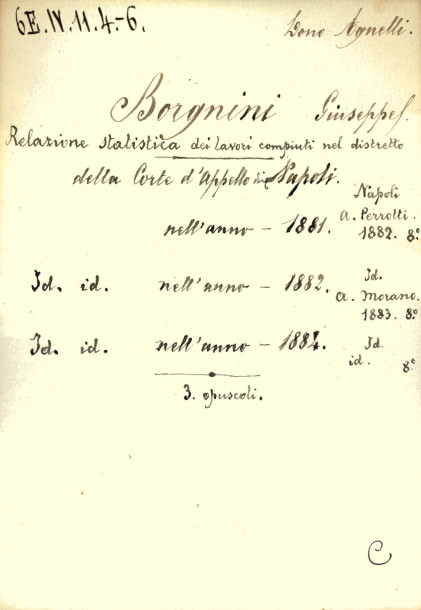 6E.IV.11.4.-6. Dono Agnelli.
Borgnini Giuseppe.
Relazione statistica dei lavori compiuti nel distretto
della Corte d'Appello di Napoli.
nell'anno - 1881. Napoli
A. Perrotti.
1882. 8.°
Id. id. nell'anno - 1882. Id.
A. Morano.
1883. 8.°
Id. id. nell'anno - 1884. Id.
id. 8.°
3. opuscoli.
C